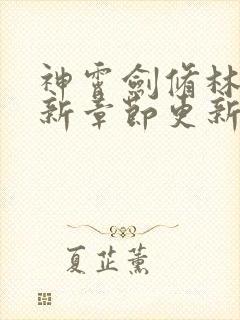 神霄劍脩林
新章節更新
夏芷薰